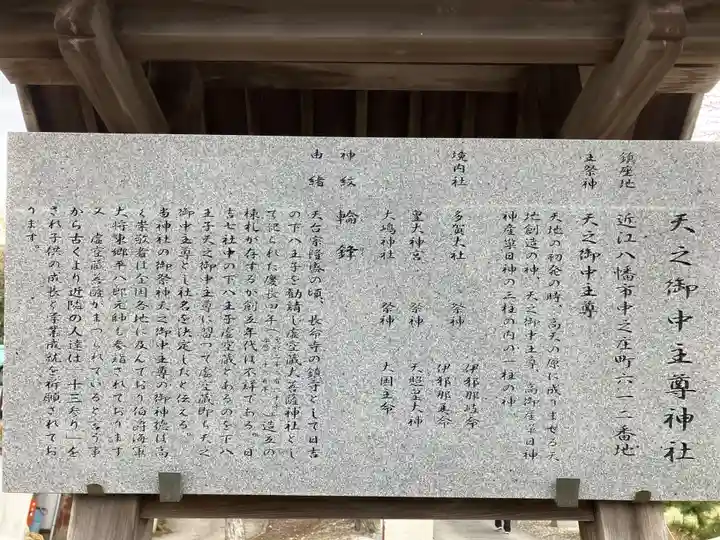 天之御中主尊神社
鎮座地　近江八幡市中之庄町六一二番地
主祭神　天之御中主尊
天地の初発の時、高天の原に成りませる天
地創造の神、天之御中主尊、高御産巣日神
神産巣日神の三柱の内の一柱の神
境内社　多賀大社　祭神　伊邪那岐命
伊邪那美命
皇大神宮　祭神　天照皇大神
大嶋神社　祭神　大国主命
神紋　輪鋒
由緒　天台宗隆盛の頃、長命寺の鎮守として日吉
の下八王子を勧請し虚空蔵大菩薩神社とし
て記られた慶長四年造立の
棟札が存するが創立年代は不祥である。日
吉七社中の下八王子虚空蔵とあるのを下八
王子天之御中主尊に習って虚空蔵即ち天之
御中主尊とし社名を決定したと伝える。
当神社の御祭神天之御中主尊の御神徳は高
く崇敬者は全国各地に及んでおり伯爵海軍
大将東郷平八郎元帥も参詣されております
又、虚空蔵菩薩がまつられていると言う事
から古くより近隣の人達は「十三参り」を
され子供の成長と学業成就を祈願されてお
ります。